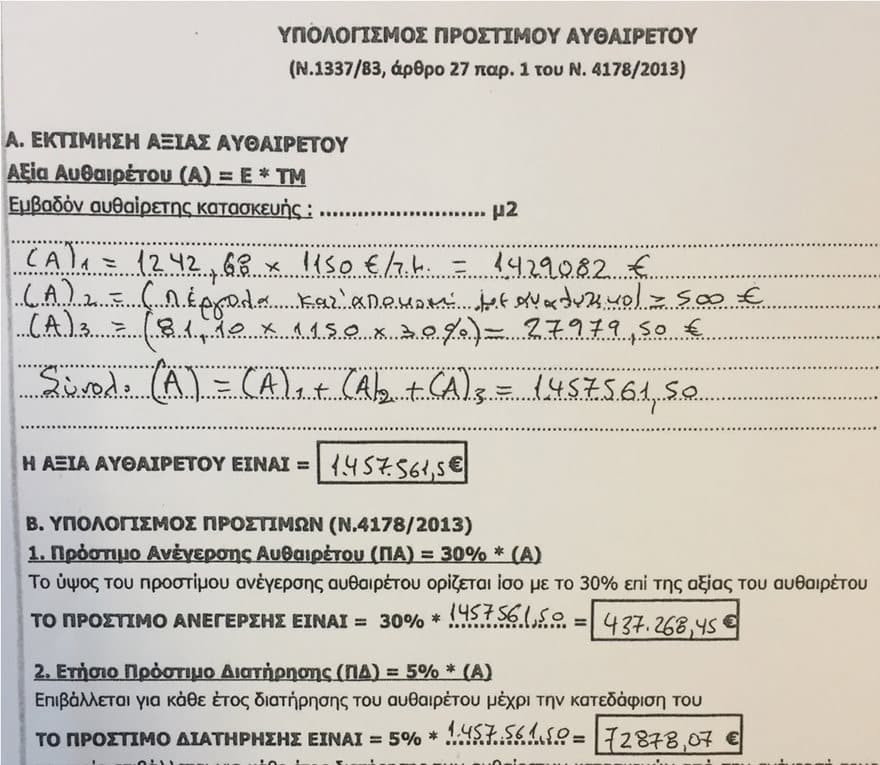 ΥΠΟΛΟΓΙΣΜΟΣ ΠΡΟΣΤΙΜΟΥ ΑΥΘΑΙΡΕΤΟΥ
(Ν.1337/83, άρθρο 27 παρ. 1 του Ν. 4178/2013)
Α. ΕΚΤΙΜΗΣΗ ΑΞΙΑΣ ΑΥΘΑΙΡΕΤΟΥ
Αξία Αυθαιρέτου (Α) = Ε * ΤΜ
Εμβαδόν αυθαίρετης κατασκευής : .......................... μ2
(Α)1 = 1242,68 x 1150 €/τ.μ. = 1429082 €
(Α)2 = (πέργολα κατ'αποκοπή = 500 €
(Α)3 = (81,10 x 1150 x 30%) = 27979,50 €
Σύνολο (Α) = (Α)1 + (Α)2 + (Α)3 = 1.457.561,50
Η ΑΞΙΑ ΑΥΘΑΙΡΕΤΟΥ ΕΙΝΑΙ = 1.457.561,5€
Β. ΥΠΟΛΟΓΙΣΜΟΣ ΠΡΟΣΤΙΜΩΝ (Ν.4178/2013)
1. Πρόστιμο Ανέγερσης Αυθαιρέτου (ΠΑ) = 30% * (Α)
Το ύψος του προστίμου ανέγερσης αυθαιρέτου ορίζεται ίσο με το 30% επί της αξίας του αυθαιρέτου
ΤΟ ΠΡΟΣΤΙΜΟ ΑΝΕΓΕΡΣΗΣ ΕΙΝΑΙ = 30% * 1457561,50 = 437.268,45 €
2. Ετήσιο Πρόστιμο Διατήρησης (ΠΔ) = 5% * (Α)
Επιβάλλεται για κάθε έτος διατήρησης του αυθαιρέτου μέχρι την κατεδάφιση του
ΤΟ ΠΡΟΣΤΙΜΟ ΔΙΑΤΗΡΗΣΗΣ ΕΙΝΑΙ = 5% * 1.457.561,50 = 72878,07 €